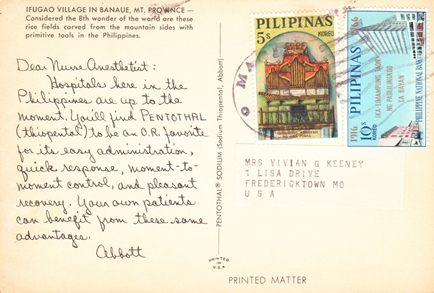 IFUGAO VILLAGE IN BANAUE, MT. PROVINCE —
Considered the 8th wonder of the world are these
rice fields carved from the mountain sides with
primitive tools in the Philippines.
Dear Nurse Anesthetist:
Hospitals here in the
Philippines are up to the
moment. You'll find PENTOTHAL
(thiopental) to be an O.R. favorite
for its easy administration,
quick response, moment-to-
moment control, and pleasant
recovery. Your own patients
can benefit from these same
advantages.
Abbott
PENTOTHAL® SODIUM (Sodium Thiopental, Abbott)
PILIPINAS
5s
KOREO
PILIPINAS
1916
1966
10s
KOREO
IKA-LIMAMPUNG TAON
NG PAGLILINGKOD
SA BAYAN
PHILIPPINE NATIONAL BANK
MRS VIVIAN G KEENEY
1 LISA DRIVE
FREDERICKTOWN MO
U S A
PRINTED
IN
U.S.A.
PRINTED MATTER